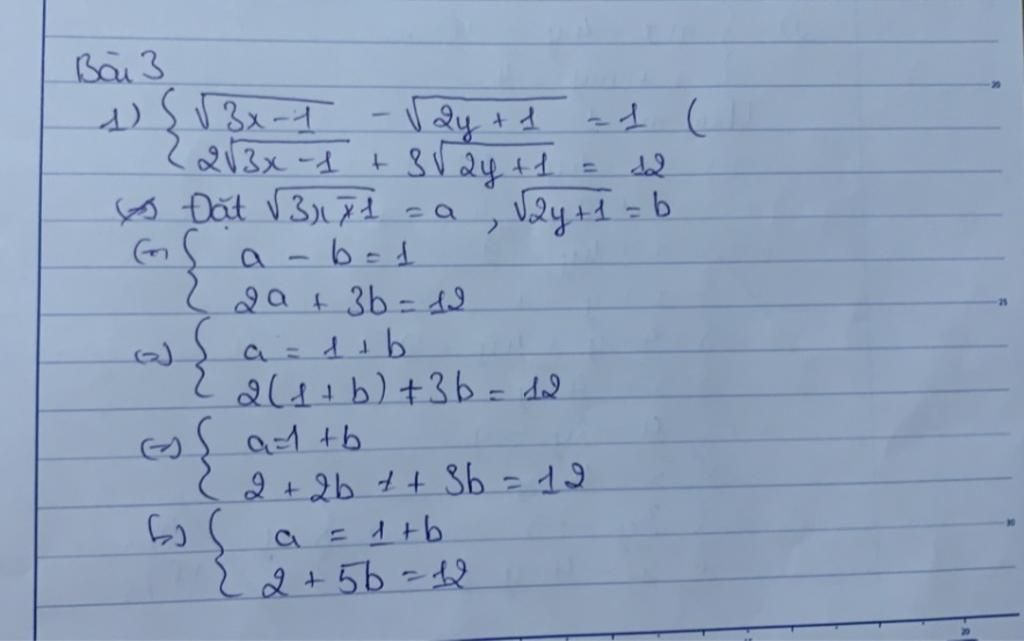 Bài 3
1) { √3x-1 - √2y+1 = 1 (
2√3x-1 + 3√2y+1 = 12
Đặt √3x-1 = a , √2y+1 = b
(=) { a - b = 1
2a + 3b = 12
(=) { a = 1 + b
2(1+b) + 3b = 12
(=) { a=1 +b
2 + 2b + 3b = 12
(=) { a = 1 + b
2 + 5b = 12
20
25
30
20